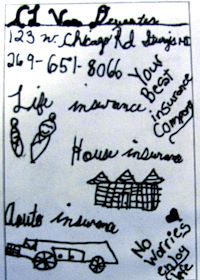 CL Van Deventer
123 W. Chicago Rd Sturgis MI
269-651-8066
Your
Best
insurance
Company
Life insurance
House insurance
Auto insurance
No
worries
enjoy
life